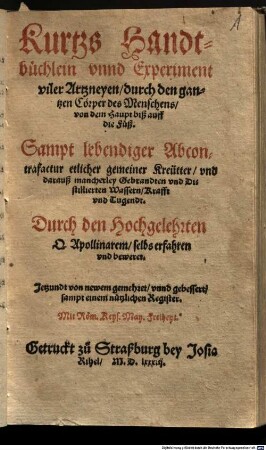 Kurtzs Handt-
büchlein vnnd Experiment
viler Artzneyen/ durch den gan-
tzen Cörper des Menschens/
von dem Haupt biß auff
die Füß.
Sampt lebendiger Abcon-
trafactur etlicher gemeiner Kreütter/ vnd
darauß mancherley Gebrandten vnd Di
stillierten Wassern/ Krafft
vnd Tugendt.
Durch den Hochgelehrten
Q. Apollinarem/ selbs erfahren
vnd beweret.
Jetzundt von newem gemehret/ vnnd gebessert/
sampt einem nützlichen Register.
Mit Röm. Keys. May. Freiheyt.
Getruckt zů Straßburg bey Josia
Rihel/ M. D. lxxxij.